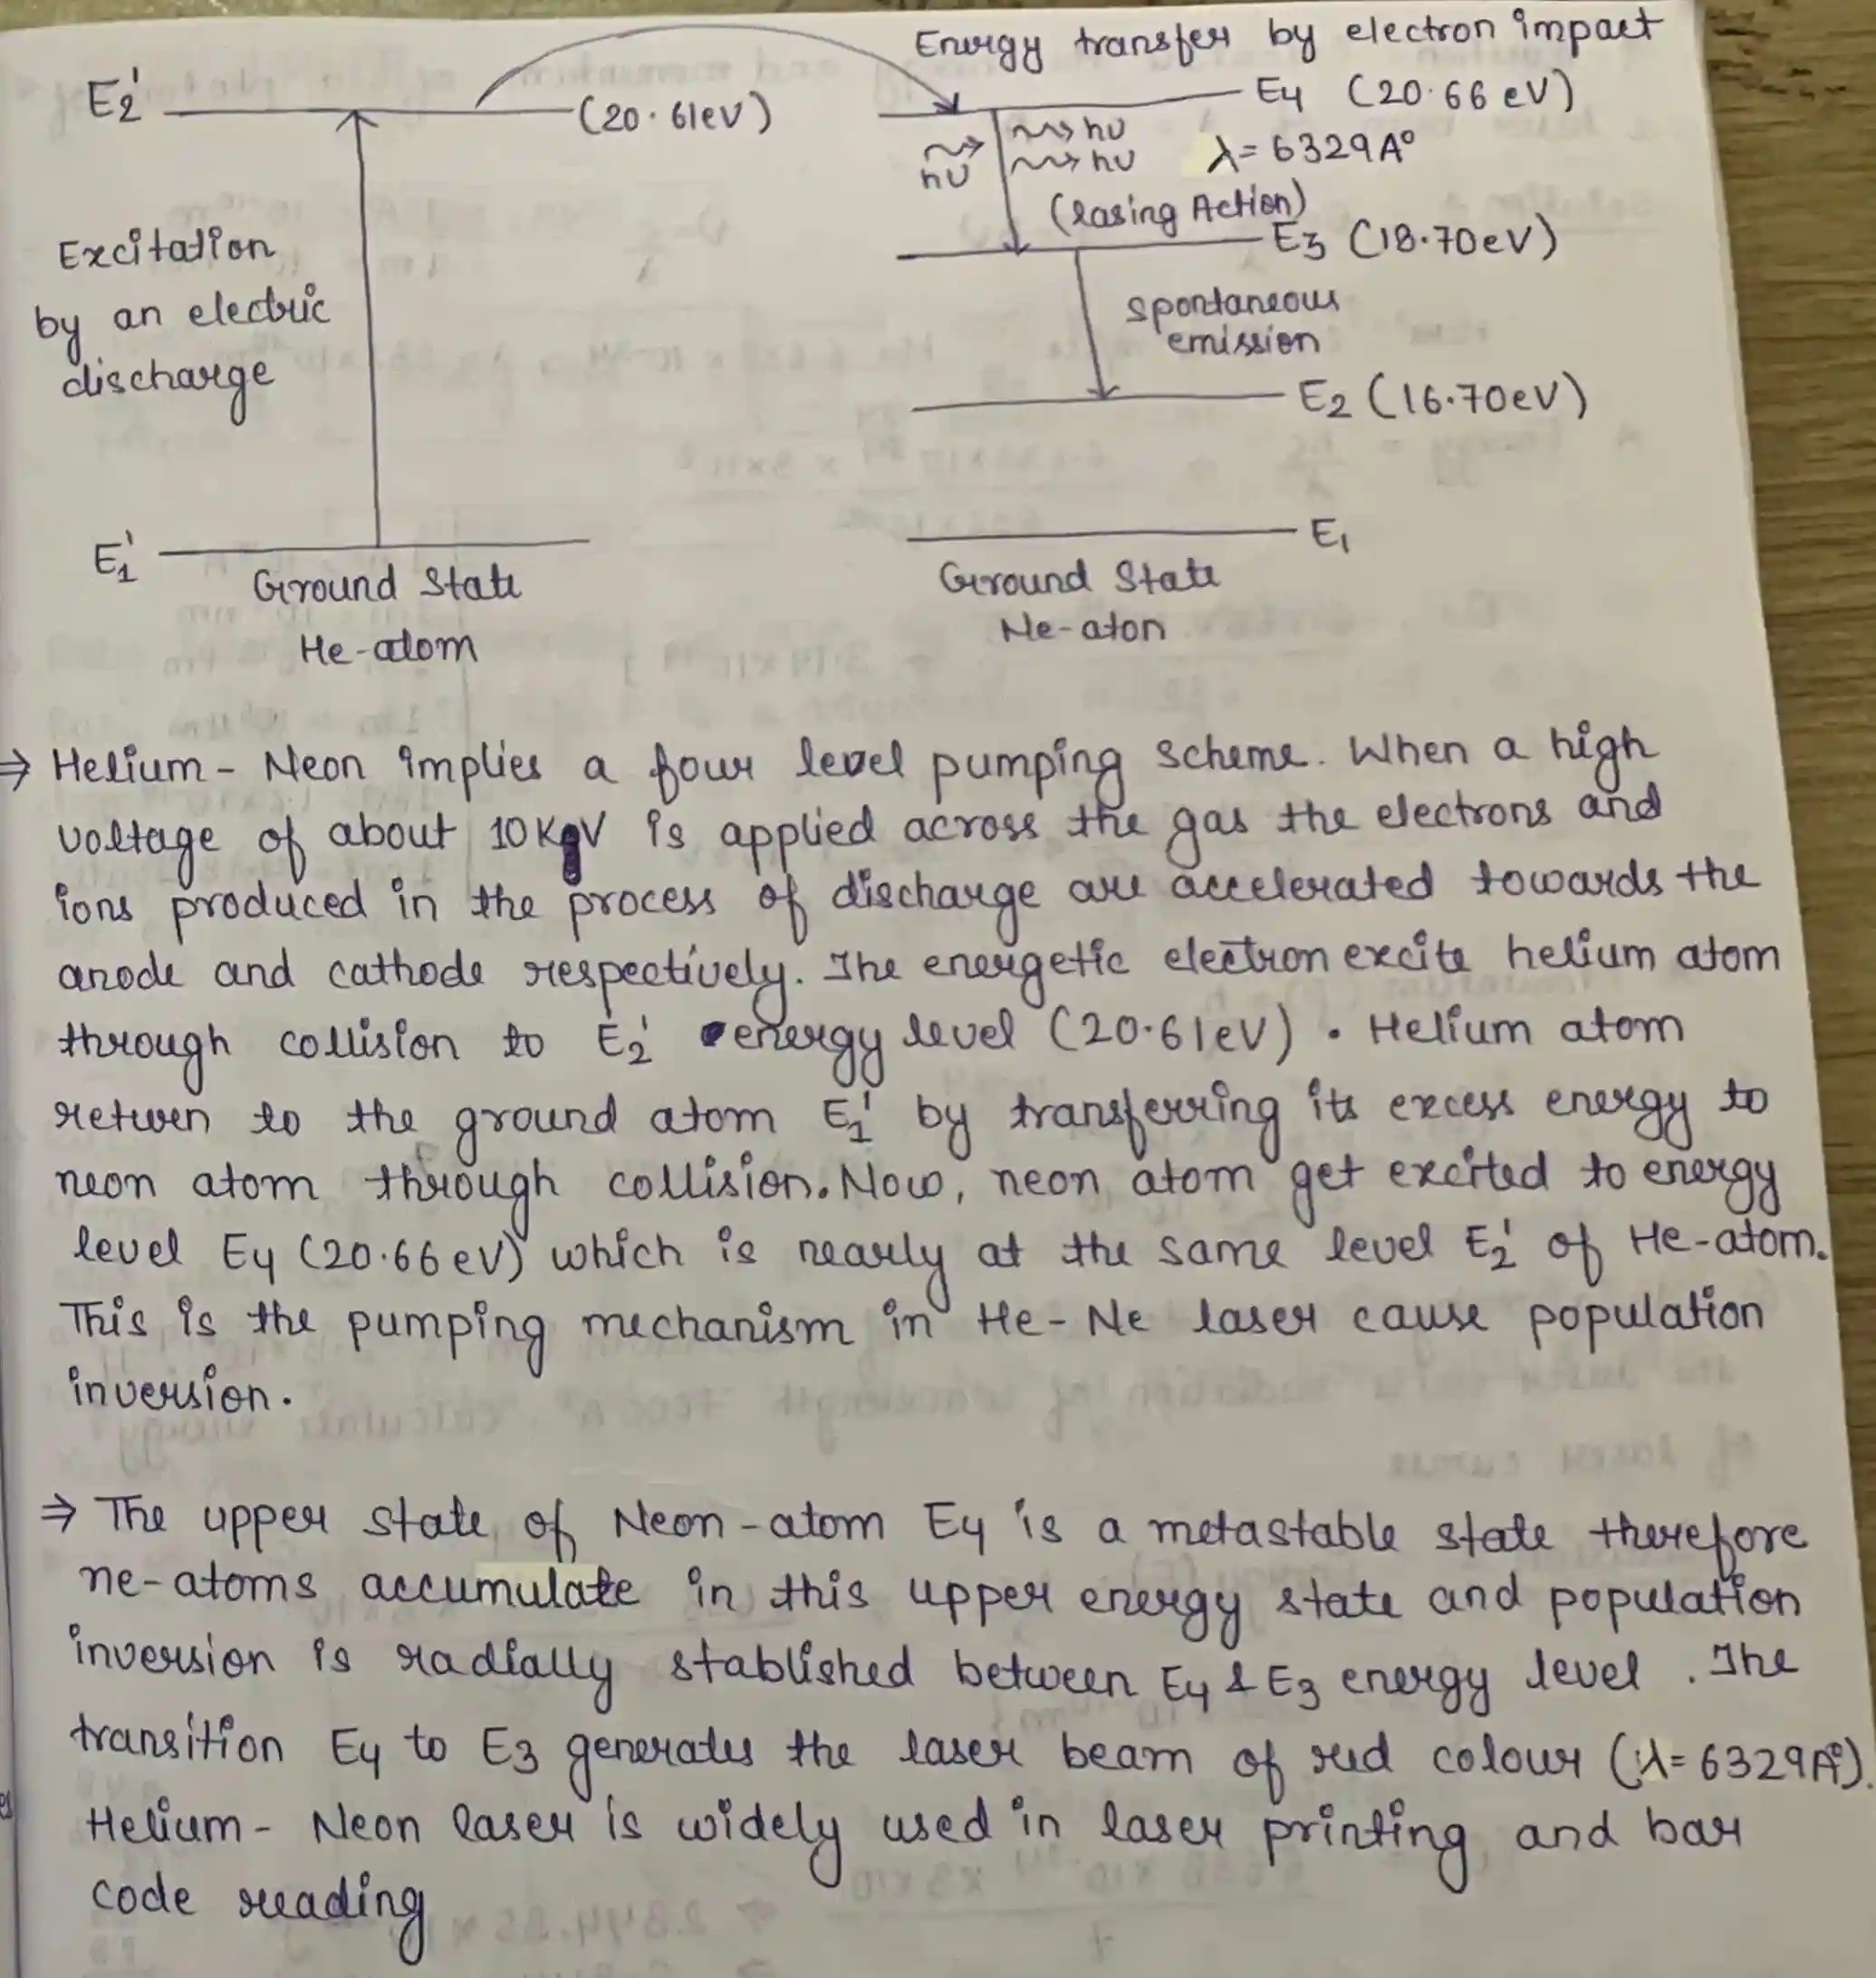 Energy transfer by electron impact
E2' (20.61eV) E4 (20.66 eV)
hυ
hυ hυ λ= 6329A°
(lasing Action)
E3 (18.70eV)
Excitation
by an electric
discharge
spontaneous
emission
E2 (16.70eV)
E1' E1
Ground State Ground State
He-atom Ne-aton
⇒ Helium - Neon implies a four level pumping scheme. When a high
voltage of about 10 KV is applied across the gas the electrons and
ions produced in the process of discharge are accelerated towards the
anode and cathode respectively. The energetic electron excite helium atom
through collision to E2' energy level (20.61eV). Helium atom
return to the ground atom E1' by transferring its excess energy to
neon atom through collision. Now, neon atom get excited to energy
level E4 (20.66 eV) which is nearly at the same level E2' of He-atom.
This is the pumping mechanism in He-Ne laser cause population
inversion.
⇒ The upper state of Neon-atom E4 is a metastable state therefore
ne-atoms accumulate in this upper energy state and population
inversion is radially stablished between E4 & E3 energy level. The
transition E4 to E3 generates the laser beam of red colour (λ= 6329A°).
Helium- Neon laser is widely used in laser printing and bar
code reading